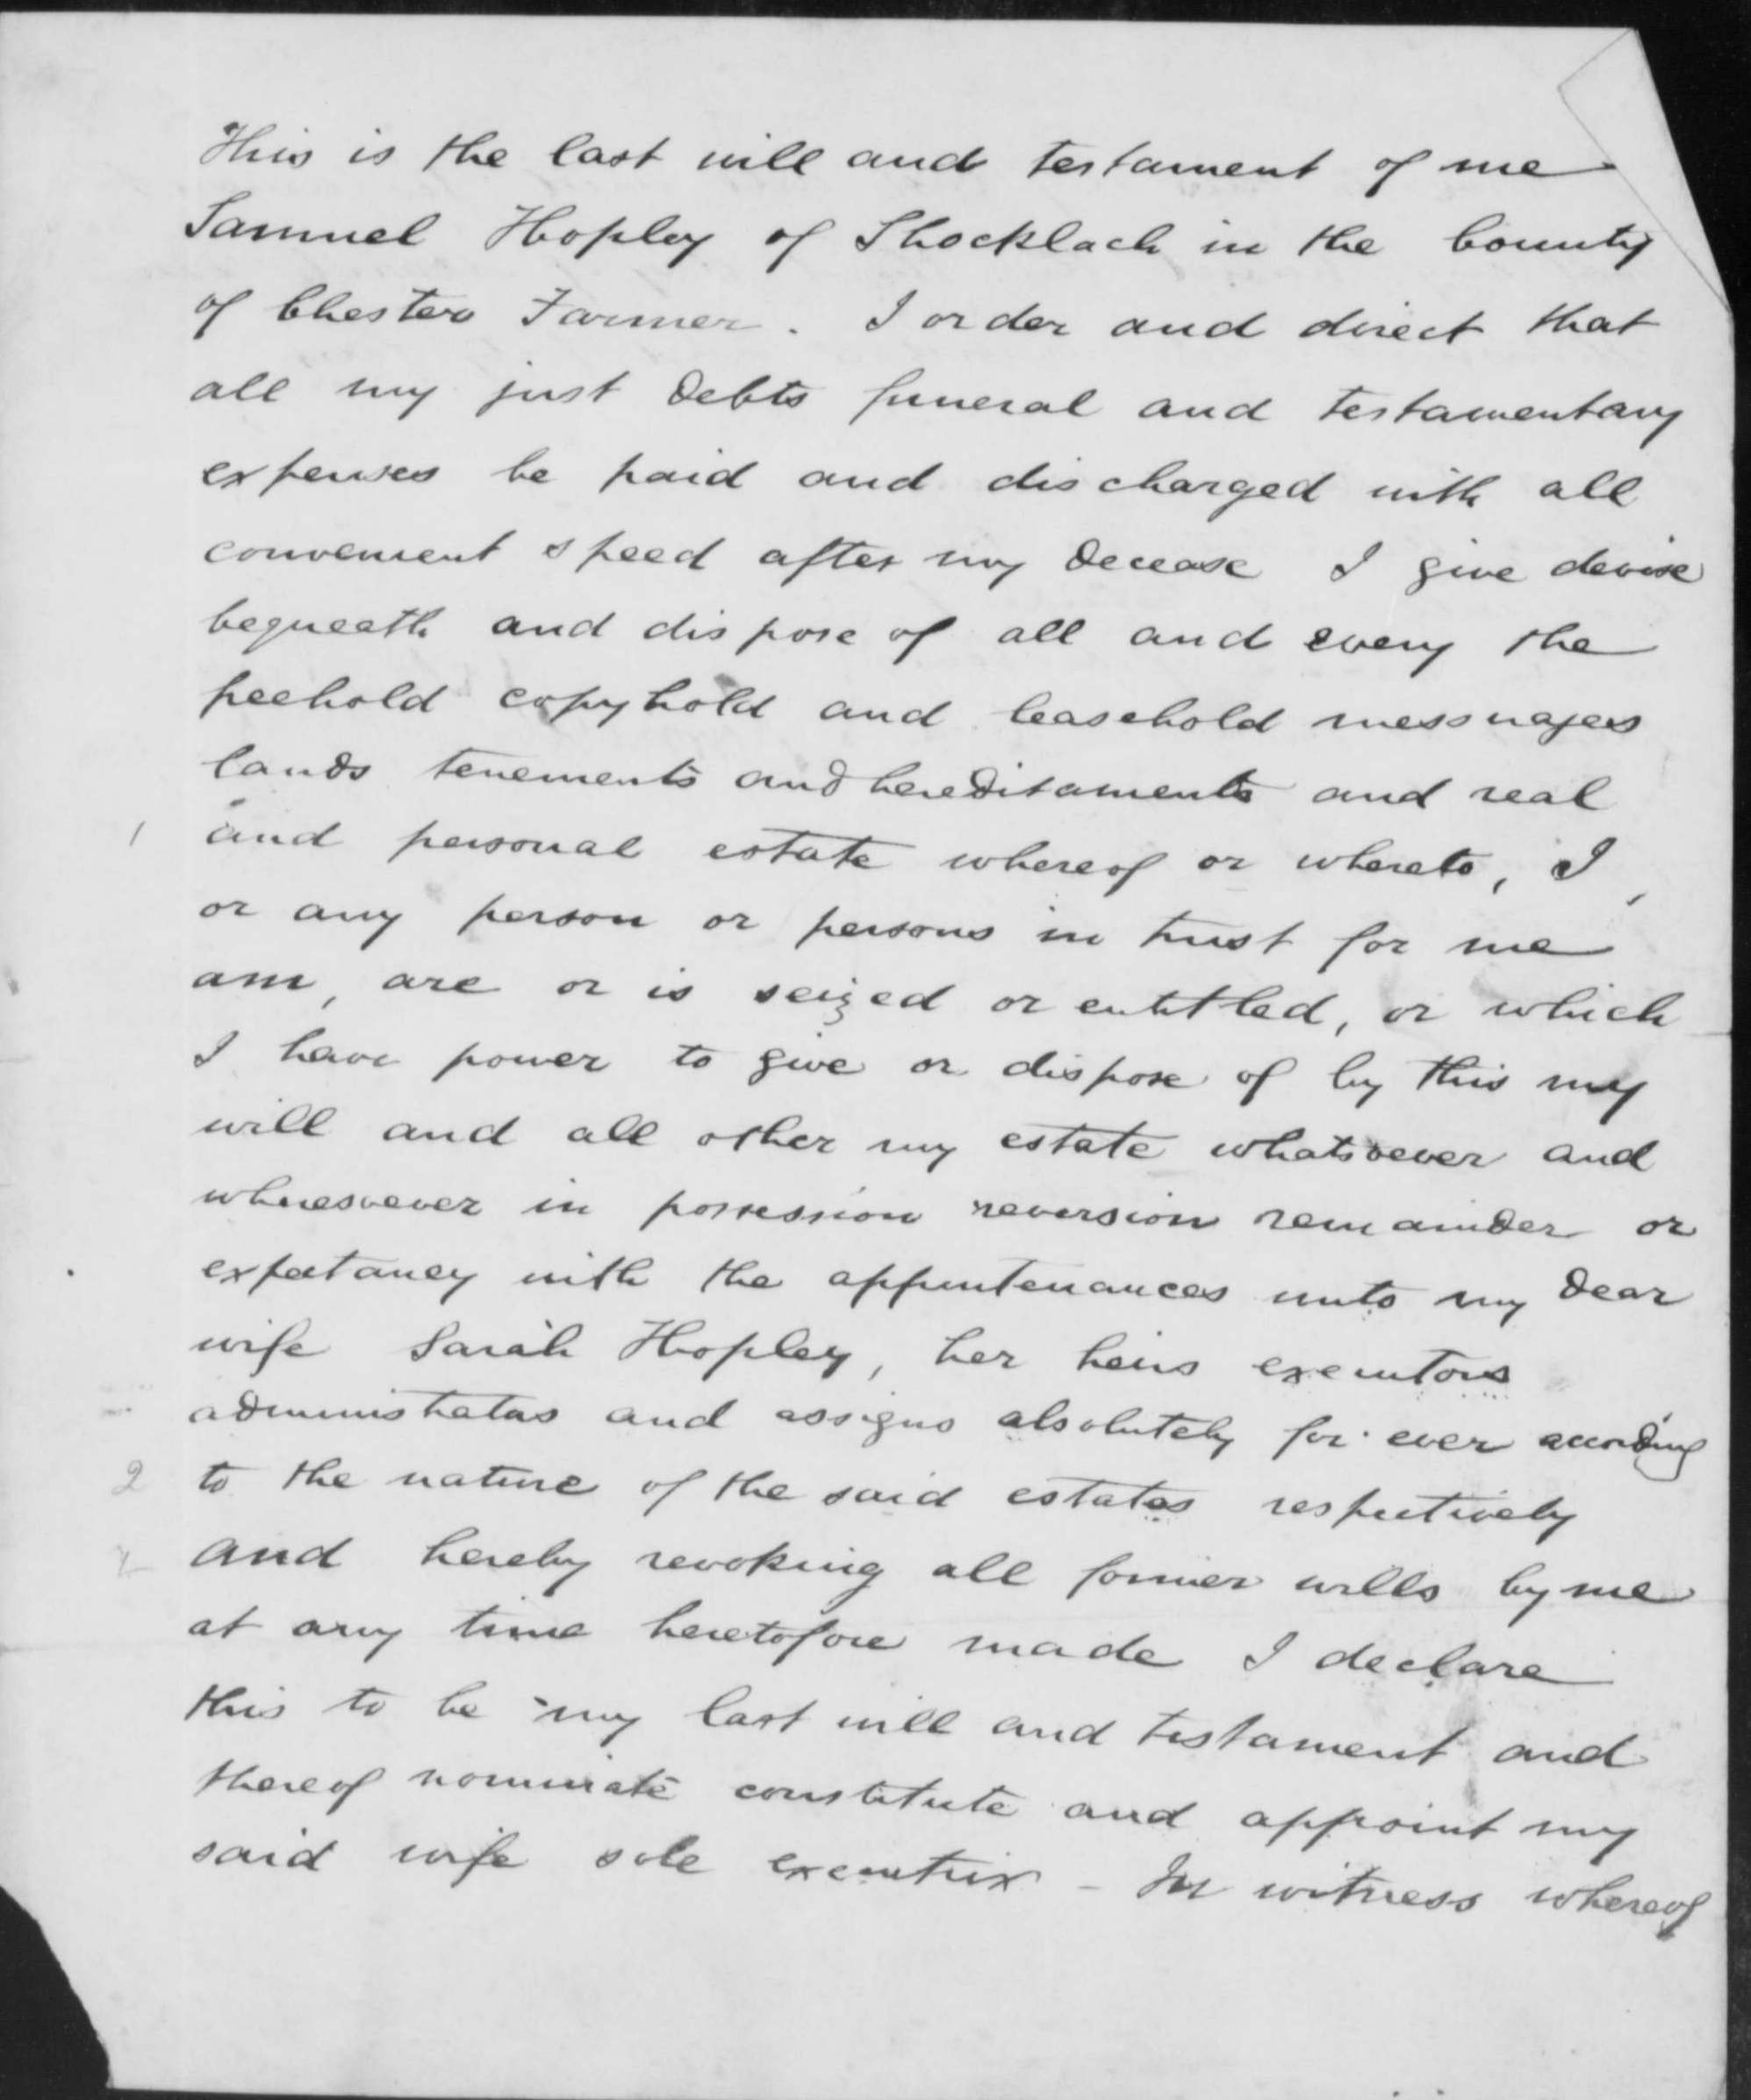 This is the last will and testament of me
Samuel Hopley of Shocklach in the County
of Chester Farmer. I order and direct that
all my just debts funeral and testamentary
expenses be paid and discharged with all
convenient speed after my decease I give devise
bequeath and dispose of all and every the
freehold copyhold and leasehold messuages
lands tenements and hereditaments and real
1 and personal estate whereof or whereto, I,
or any person or persons in trust for me
am, are or is seized or entitled, or which
I have power to give or dispose of by this my
will and all other my estate whatsoever and
wheresoever in possession reversion remainder or
expectancy with the appurtenances unto my dear
wife Sarah Hopley, her heirs executors
administrators and assigns absolutely for ever according
2 to the nature of the said estates respectively
and hereby revoking all former wills by me
at any time heretofore made I declare
this to be my last will and testament and
thereof nominate constitute and appoint my
said wife sole executrix - In witness whereof